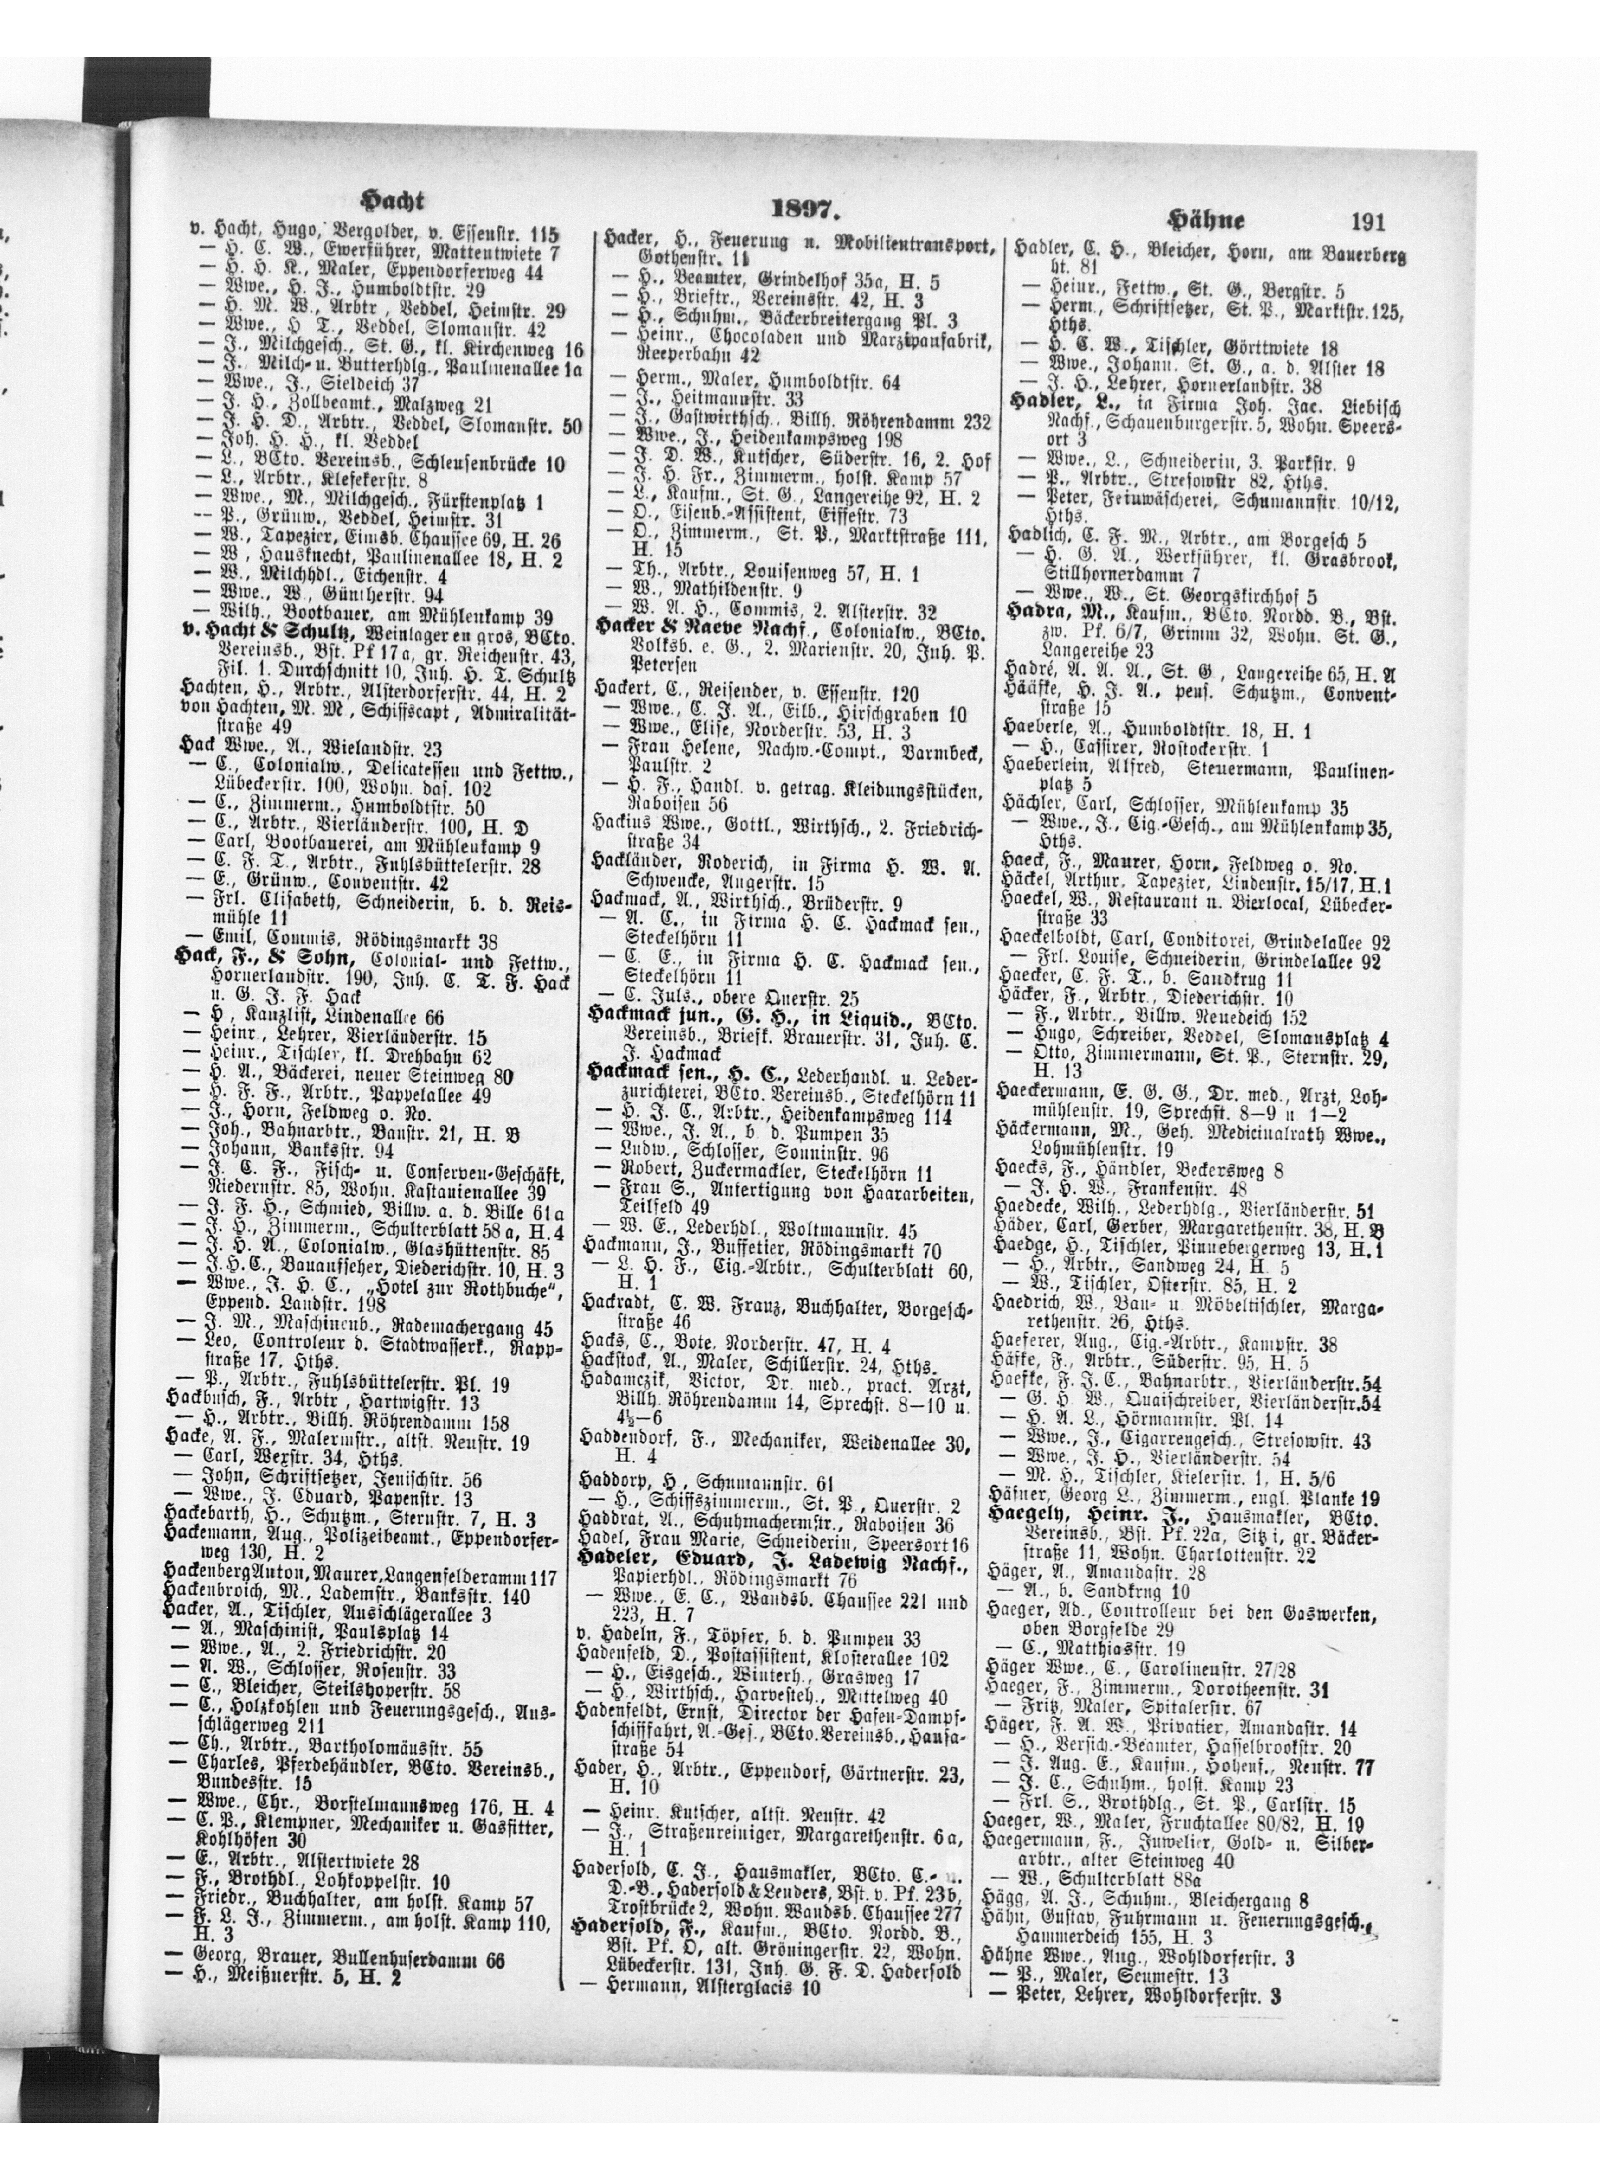 Hacht
1897.
Hähne 191
v. Hacht, Hugo, Vergolder, v. Essenstr. 115
— H. C. W., Ewerführer, Mattentwiete 7
— H. H. K., Maler, Eppendorferweg 44
— Wwe., H. J., Humboldtstr. 29
— H. M. W., Arbtr, Veddel, Heimstr. 29
— Wwe., H T., Veddel, Slomanstr. 42
— J., Milchgesch., St. G., kl. Kirchenweg 16
— J. Milch- u. Butterhdlg., Paulinenallee 1a
— Wwe., J., Sieldeich 37
— J. H., Zollbeamt., Malzweg 21
— J. H. D., Arbtr., Veddel, Slomanstr. 50
— Joh. H. H., kl. Veddel
— L., BCto. Vereinsb., Schleusenbrücke 10
— L., Arbtr., Klefekerstr. 8
— Wwe., M., Milchgesch., Fürstenplatz 1
— P., Grünw., Veddel, Heimstr. 31
— W., Tapezier, Eimsb. Chaussee 69, H. 26
— W, Hausknecht, Paulinenallee 18, H. 2
— W., Milchhdl., Eichenstr. 4
— Wwe., W., Güntherstr. 94
— Wilh., Bootbauer, am Mühlenkamp 39
v. Hacht & Schultz, Weinlager en gros, BCto.
Vereinsb., Bst. Pf 17a, gr. Reichenstr. 43,
Fil. 1. Durchschnitt 10, Inh. H. T. Schultz
Hachten, H., Arbtr., Alsterdorferstr. 44, H. 2
von Hachten, M. M., Schiffscapt, Admiralität-
straße 49
Hack Wwe., A., Wielandstr. 23
— C., Colonialw., Delicatessen und Fettw.,
Lübeckerstr. 100, Wohn. das. 102
— C., Zimmerm., Humboldtstr. 50
— C., Arbtr., Vierländerstr. 100, H. D
— Carl, Bootbauerei, am Mühlenkamp 9
— C. F. T., Arbtr., Fuhlsbüttelerstr. 28
— E., Grünw., Conventstr. 42
— Frl. Elisabeth, Schneiderin, b. d. Reis-
mühle 11
— Emil, Commis, Rödingsmarkt 38
Hack, F., & Sohn, Colonial- und Fettw.,
Hornerlandstr. 190, Inh. C. T. F. Hack
u. G. J. F. Hack
— H, Kanzlist, Lindenallee 66
— Heinr, Lehrer, Vierländerstr. 15
— Heinr., Tischler, kl. Drehbahn 62
— H. A., Bäckerei, neuer Steinweg 80
— H. F. F., Arbtr., Pappelallee 49
— J., Horn, Feldweg o. No.
— Joh., Bahnarbtr., Banstr. 21, H. B
— Johann, Banksstr. 94
— J. C. F., Fisch- u. Conserven-Geschäft,
Niedernstr. 85, Wohn. Kastanienallee 39
— J. F. H., Schmied, Billw. a. d. Bille 61a
— J. H., Zimmerm., Schulterblatt 58a, H. 4
— J. H. A., Colonialw., Glashüttenstr. 85
— J. H. C., Bauaufseher, Diederichstr. 10, H. 3
— Wwe., J. H. C., „Hotel zur Rothbuche“,
Eppend. Landstr. 198
— J. M., Maschinenb., Rademachergang 45
— Leo, Controleur d. Stadtwasserk., Rapp-
straße 17, Hths.
— P., Arbtr., Fuhlsbüttelerstr. Pl. 19
Hackbusch, F., Arbtr, Hartwigstr. 13
— H., Arbtr., Billh. Röhrendamm 158
Hacke, A. F., Malermstr., altst. Neustr. 19
— Carl, Wexstr. 34, Hths.
— John, Schriftsetzer, Jenischstr. 56
— Wwe., J. Eduard, Papenstr. 13
Hackebarth, H., Schutzm., Sternstr. 7, H. 3
Hackemann, Aug., Polizeibeamt., Eppendorfer-
weg 130, H. 2
Hackenberg Anton, Maurer, Langenfelderamm 117
Hackenbroich, M., Lademstr., Banksstr. 140
Hacker, A., Tischler, Ausschlägerallee 3
— A., Maschinist, Paulsplatz 14
— Wwe., A., 2. Friedrichstr. 20
— A. W., Schlosser, Rosenstr. 33
— C., Bleicher, Steilshoperstr. 58
— C., Holzkohlen und Feuerungsgesch., Aus-
schlägerweg 211
— Ch., Arbtr., Bartholomäusstr. 55
— Charles, Pferdehändler, BCto. Vereinsb.,
Bundesstr. 15
— Wwe., Chr., Borstelmannsweg 176, H. 4
— C. P., Klempner, Mechaniker u. Gasfitter,
Kohlhöfen 30
— E., Arbtr., Alstertwiete 28
— F., Brothdl., Lohkoppelstr. 10
— Friedr., Buchhalter, am holst. Kamp 57
— F. L. J., Zimmerm., am holst. Kamp 110,
H. 3
— Georg, Brauer, Bullenhuserdamm 66
— H., Meißnerstr. 5, H. 2
Hacker, H., Feuerung u. Mobilientransport,
Gothenstr. 11
— H., Beamter, Grindelhof 35a, H. 5
— H., Brieftr., Vereinsstr. 42, H. 3
— H., Schuhm., Bäckerbreitergang Pl. 3
— Heinr., Chocoladen und Marzipanfabrik,
Reeperbahn 42
— Herm., Maler, Humboldtstr. 64
— J., Heitmannstr. 33
— J., Gastwirthsch., Billh. Röhrendamm 232
— Wwe., J., Heidenkampsweg 198
— J. D. W., Kutscher, Süderstr. 16, 2. Hof
— J. H. Fr., Zimmerm., holst. Kamp 57
— L., Kaufm., St. G., Langereihe 92, H. 2
— O., Eisenb.-Assistent, Eiffestr. 73
— O., Zimmerm., St. P., Marktstraße 111,
H. 15
— Th., Arbtr., Louisenweg 57, H. 1
— W., Mathildenstr. 9
— W. A. H., Commis, 2. Alsterstr. 32
Hacker & Naeve Nachf., Colonialw., BCto.
Volksb. e. G., 2. Marienstr. 20, Inh. P.
Petersen
Hackert, C., Reisender, v. Essenstr. 120
— Wwe., C. J. A., Eilb., Hirschgraben 10
— Wwe., Elise, Norderstr. 53, H. 3
— Frau Helene, Nachw.-Compt., Barmbeck,
Paulstr. 2
— H. F., Handl. v. getrag. Kleidungsstücken,
Raboisen 56
Hackius Wwe., Gottl., Wirthsch., 2. Friedrich-
straße 34
Hackländer, Roderich, in Firma H. W. A.
Schwencke, Angerstr. 15
Hackmack, A., Wirthsch., Brüderstr. 9
— A. C., in Firma H. C. Hackmack sen.,
Steckelhörn 11
— C. E., in Firma H. C. Hackmack sen.,
Steckelhörn 11
— C. Juls., obere Querstr. 25
Hackmack jun., G. H., in Liquid., BCto.
Vereinsb., Briefk. Brauerstr. 31, Inh. C.
J. Hackmack
Hackmack sen., H. C., Lederhandl. u. Leder-
zurichterei, BCto. Vereinsb., Steckelhörn 11
— H. J. C., Arbtr., Heidenkampsweg 114
— Wwe., J. A., b. d. Pumpen 35
— Ludw., Schlosser, Sonninstr. 96
— Robert, Zuckermackler, Steckelhörn 11
— Frau S., Anfertigung von Haararbeiten,
Teilfeld 49
— W. E., Lederhdl., Woltmannstr. 45
Hackmann, J., Buffetier, Rödingsmarkt 70
— L. H. F., Cig.-Arbtr., Schulterblatt 60,
H. 1
Hackradt, C. W. Franz, Buchhalter, Borgesch-
straße 46
Hacks, C., Bote, Norderstr. 47, H. 4
Hackstock, A., Maler, Schillerstr. 24, Hths.
Hadamczik, Victor, Dr. med., pract. Arzt,
Billh. Röhrendamm 14, Sprechst. 8—10 u.
4½—6
Haddendorf, F., Mechaniker, Weidenallee 30,
H. 4
Haddorp, H, Schumannstr. 61
— H., Schiffszimmerm., St. P., Querstr. 2
Haddrat, A., Schuhmachermstr., Raboisen 36
Hadel, Frau Marie, Schneiderin, Speersort 16
Hadeler, Eduard, J. Ladewig Nachf.,
Papierhdl., Rödingsmarkt 76
— Wwe., E. C., Wandsb. Chaussee 221 und
223, H. 7
v. Hadeln, F., Töpfer, b. d. Pumpen 33
Hadenfeld, D., Postassistent, Klosterallee 102
— H., Eisgesch., Winterh., Grasweg 17
— H., Wirthsch., Harvesteh., Mittelweg 40
Hadenfeldt, Ernst, Director der Hafen-Dampf-
schifffahrt, A.-Ges., BCto. Vereinsb., Hansa-
straße 54
Hader, H., Arbtr., Eppendorf, Gärtnerstr. 23,
H. 10
— Heinr. Kutscher, altst. Neustr. 42
— J., Straßenreiniger, Margarethenstr. 6a,
H. 1
Hadersold, C. J., Hausmakler, BCto C.- u.
D.-B., Hadersold & Lenders, Bst. v. Pf. 23b,
Trostbrücke 2, Wohn. Wandsb. Chaussee 277
Hadersold, F., Kaufm., BCto. Nordd. B.,
Bst. Pf. O, alt. Gröningerstr. 22, Wohn.
Lübeckerstr. 131, Inh. G. F. D. Hadersold
— Hermann, Alsterglacis 10
Hadler, C. H., Bleicher, Horn, am Bauerberg
ht. 81
— Heinr., Fettw., St. G., Bergstr. 5
— Herm., Schriftsetzer, St. P., Marktstr. 125,
Hths.
— H. C. W., Tischler, Görttwiete 18
— Wwe., Johann, St. G., a. d. Alster 18
— J. H., Lehrer, Hornerlandstr. 38
Hadler, L., in Firma Joh. Jac. Liebisch
Nachf., Schauenburgerstr. 5, Wohn. Speers-
ort 3
— Wwe., L., Schneiderin, 3. Parkstr. 9
— P., Arbtr., Stresowstr 82, Hths.
— Peter, Feinwäscherei, Schumannstr. 10/12,
Hths.
Hadlich, C. F. M., Arbtr., am Borgesch 5
— H. G. A., Werkführer, kl. Grasbrook,
Stillhornerdamm 7
— Wwe., W., St. Georgskirchhof 5
Hadra, M., Kaufm., BCto. Nordd. B., Bst.
zw. Pf. 6/7, Grimm 32, Wohn. St. G.,
Langereihe 23
Hadré, A. A. A., St. G, Langereihe 65, H. A
Hääfke, H. J. A., pens. Schutzm., Convent-
straße 15
Haeberle, A., Humboldtstr. 18, H. 1
— H., Cassirer, Rostockerstr. 1
Haeberlein, Alfred, Steuermann, Paulinen-
platz 5
Hächler, Carl, Schlosser, Mühlenkamp 35
— Wwe., J., Cig.-Gesch., am Mühlenkamp 35,
Hths.
Haeck, F., Maurer, Horn, Feldweg o. No.
Häckel, Arthur, Tapezier, Lindenstr. 15/17, H. 1
Haeckel, W., Restaurant u. Bierlocal, Lübecker-
straße 33
Haeckelboldt, Carl, Conditorei, Grindelallee 92
— Frl. Louise, Schneiderin, Grindelallee 92
Haecker, C. F. T., b. Sandkrug 11
Häcker, F., Arbtr., Diederichstr. 10
— F., Arbtr., Billw. Neuedeich 152
— Hugo, Schreiber, Veddel, Slomansplatz 4
— Otto, Zimmermann, St. P., Sternstr. 29,
H. 13
Haeckermann, E. G. G., Dr. med., Arzt, Loh-
mühlenstr. 19, Sprechst. 8—9 u 1—2
Häckermann, M., Geh. Medicinalrath Wwe.,
Lohmühlenstr. 19
Haecks, F., Händler, Beckersweg 8
— J. H. W., Frankenstr. 48
Haedecke, Wilh., Lederhdlg., Vierländerstr. 51
Häder, Carl, Gerber, Margarethenstr. 38, H. B
Haedge, H., Tischler, Pinnebergerweg 13, H. 1
— H., Arbtr., Sandweg 24, H. 5
— W., Tischler, Osterstr. 85, H. 2
Haedrich, W., Bau- u Möbeltischler, Marga-
rethenstr. 26, Hths.
Haeferer, Aug., Cig.-Arbtr., Kampstr. 38
Häfke, F., Arbtr., Süderstr. 95, H. 5
Haefke, F. J. C., Bahnarbtr., Vierländerstr. 54
— G. H W., Quaischreiber, Vierländerstr. 54
— H. A. L., Hörmannstr. Pl. 14
— Wwe., J., Cigarrengesch., Stresowstr. 43
— Wwe., J. H., Vierländerstr. 54
— M. H., Tischler, Kielerstr. 1, H. 5/6
Häfner, Georg L., Zimmerm., engl. Planke 19
Haegely, Heinr. J., Hausmakler, BCto.
Vereinsb., Bst. Pf. 22a, Sitz i, gr. Bäcker-
straße 11, Wohn. Charlottenstr. 22
Häger, A., Amandastr. 28
— A., b. Sandkrug 10
Haeger, Ad., Controlleur bei den Gaswerken,
oben Borgfelde 29
— C., Matthiasstr. 19
Häger Wwe., C., Carolinenstr. 27/28
Haeger, F., Zimmerm., Dorotheenstr. 31
— Fritz, Maler, Spitalerstr. 67
Häger, F. A. W., Privatier, Amandastr. 14
— H., Versich.-Beamter, Hasselbrookstr. 20
— J. Aug. E., Kaufm., Hohenf., Neustr. 77
— J. C., Schuhm., holst. Kamp 23
— Frl. S., Brothdlg., St. P., Carlstr. 15
Haeger, W., Maler, Fruchtallee 80/82, H. 19
Haegermann, F., Juwelier, Gold- u. Silber-
arbtr., alter Steinweg 40
— W., Schulterblatt 88a
Hägg, A. J., Schuhm., Bleichergang 8
Hähn, Gustav, Fuhrmann u. Feuerungsgesch.,
Hammerdeich 155, H. 3
Hähne Wwe., Aug., Wohldorferstr. 3
— P., Maler, Seumestr. 13
— Peter, Lehrer, Wohldorferstr. 3